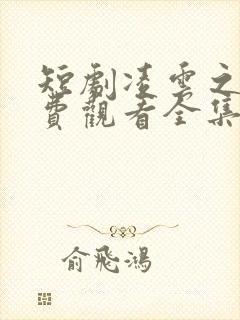 短劇凌雲之
費觀看全集
俞飛鴻